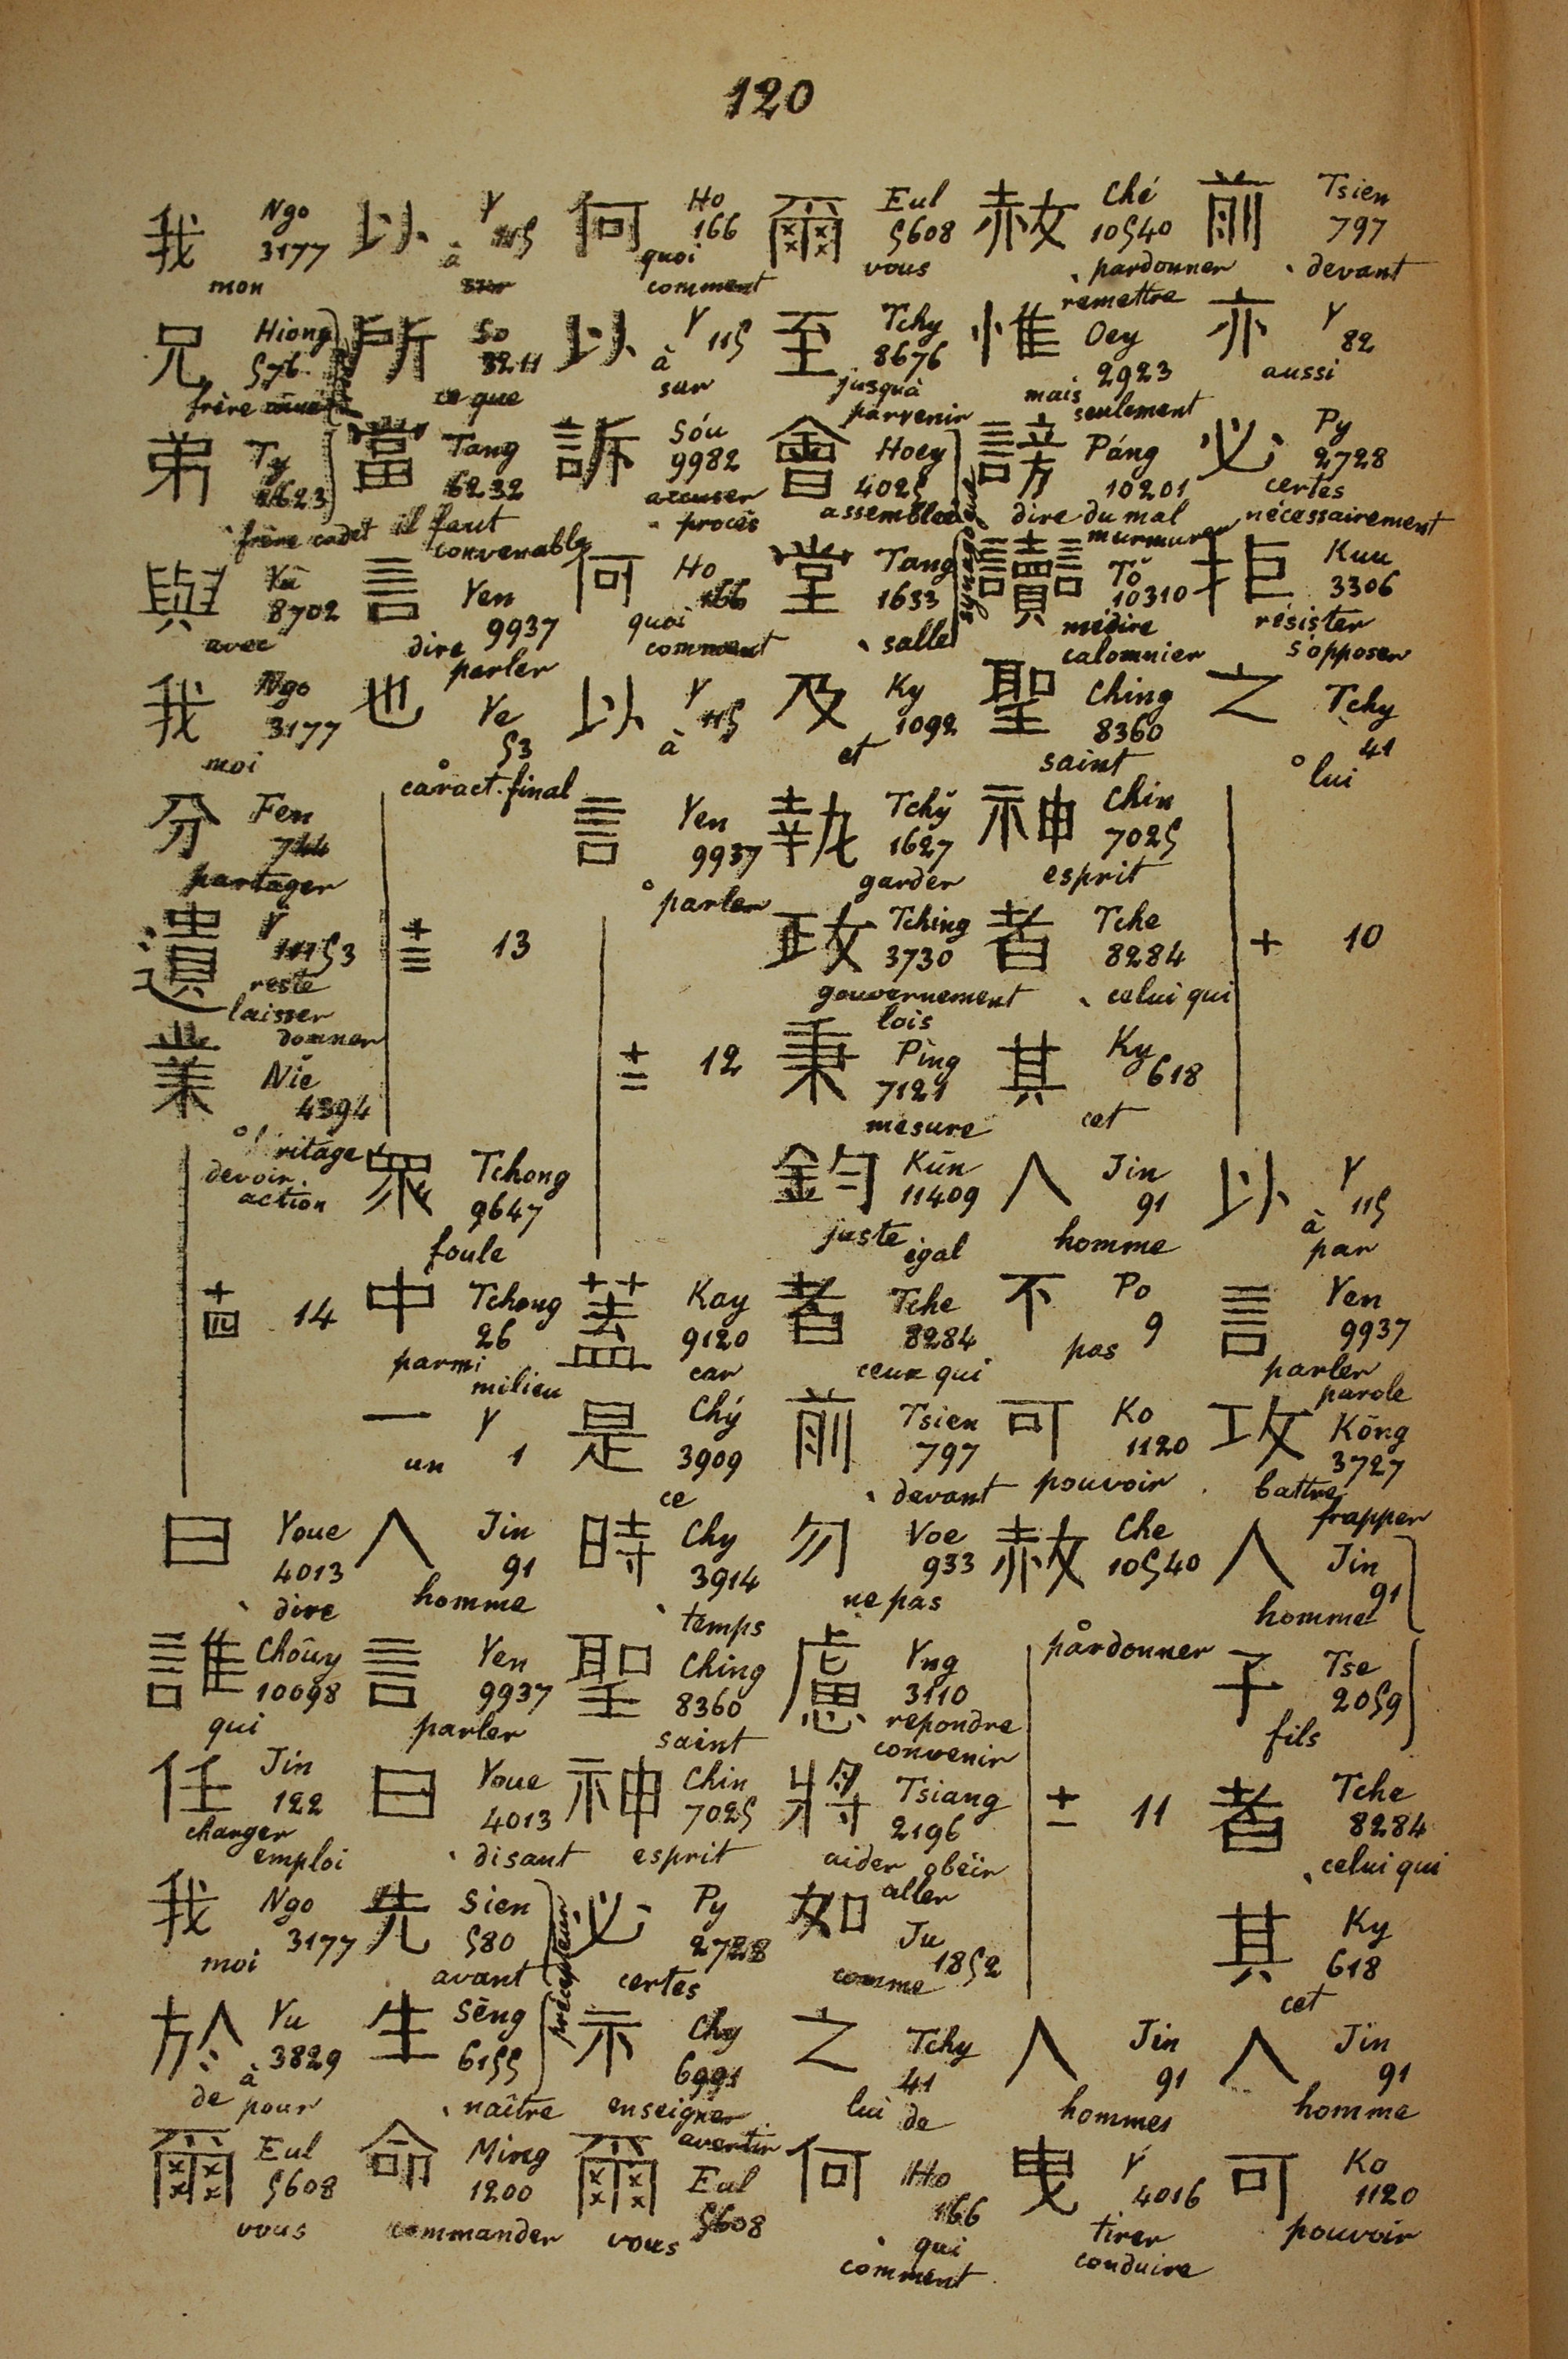 120
前 Tsien 797 devant
亦 Y 82 aussi
必 Py 2728 certes nécessairement
拒 Kuu 3306 résister s'opposer
之 Tchy 41 lui
十 10
以 Y 115 à par
言 Yen 9937 parler parole
攻 Kōng 3727 battre frapper
人 Jin 91 homme
子 Tse 2059 fils
者 Tche 8284 celui qui
其 Ky 618 cet
人 Jin 91 homme
可 Ko 1120 pouvoir
赦 Ché 10540 pardonner remettre
惟 Oey 2923 mais seulement
謗 Páng 10201 dire du mal murmurer
讟 Tŏ 10310 médire calomnier
聖 Ching 8360 saint
神 Chin 7025 esprit
者 Tche 8284 celui qui
其 Ky 618 cet
人 Jin 91 homme
不 Po 9 pas
可 Ko 1120 pouvoir
赦 Che 10540 pardonner
十一 11
人 Jin 91 hommes
曳 Y 4016 tirer conduire
爾 Eul 5608 vous
至 Tchy 8676 jusqu'à parvenir
會 Hoey 4025 assemblée
堂 Tang 1633 salle
及 Ky 1092 et
執 Tchy̆ 1627 garder
政 Tching 3730 gouvernement lois
秉 Pìng 7121 mesure
鈞 Kūn 11409 juste égal
者 Tche 8284 ceux qui
前 Tsien 797 devant
勿 Voe 933 ne pas
慮 Yng 3110 repondre convenir
將 Tsiang 2196 aider obéir aller
如 Ju 1852 comme
之 Tchy 41 lui de
何 Ho 166 qui comment
何 Ho 166 quoi comment
以 Y 115 à sur
訴 Sóu 9982 accuser procès
何 Ho 166 quoi comment
以 Y 115 à
言 Yen 9937 parler
十二 12
蓋 Kay 9120 car
是 Chý 3909 ce
時 Chy 3914 temps
聖 Ching 8360 saint
神 Chin 7025 esprit
必 Py 2728 certes
示 Chy 6991 enseigner avertir
爾 Eul 5608 vous
以 Y 115 à
所 So 3211 ce que
當 Tang 6232 il faut convenable
言 Yen 9937 dire parler
也 Ye 53 caract. final
十三 13
衆 Tchong 9647 foule
中 Tchong 26 parmi milieu
一 Y 1 un
人 Jin 91 homme
言 Yen 9937 parler
曰 Youe 4013 disant
先 Sien 580 avant
précepteur
生 Sēng 6155 naître
命 Ming 1200 commander
我 Ngo 3177 mon
兄 Hiong 576 frère
弟 Ty 2623 frère cadet
與 Yù 8702 avec
我 Ngo 3177 moi
分 Fen 744 partager
遺 Y 11153 reste laisser donner
業 Niĕ 4394 devoir action
十四 14
曰 Youe 4013 dire
誰 Choūy 10098 qui
任 Jin 122 charger emploi
我 Ngo 3177 moi
於 Yu 3829 à de pour
爾 Eul 5608 vous